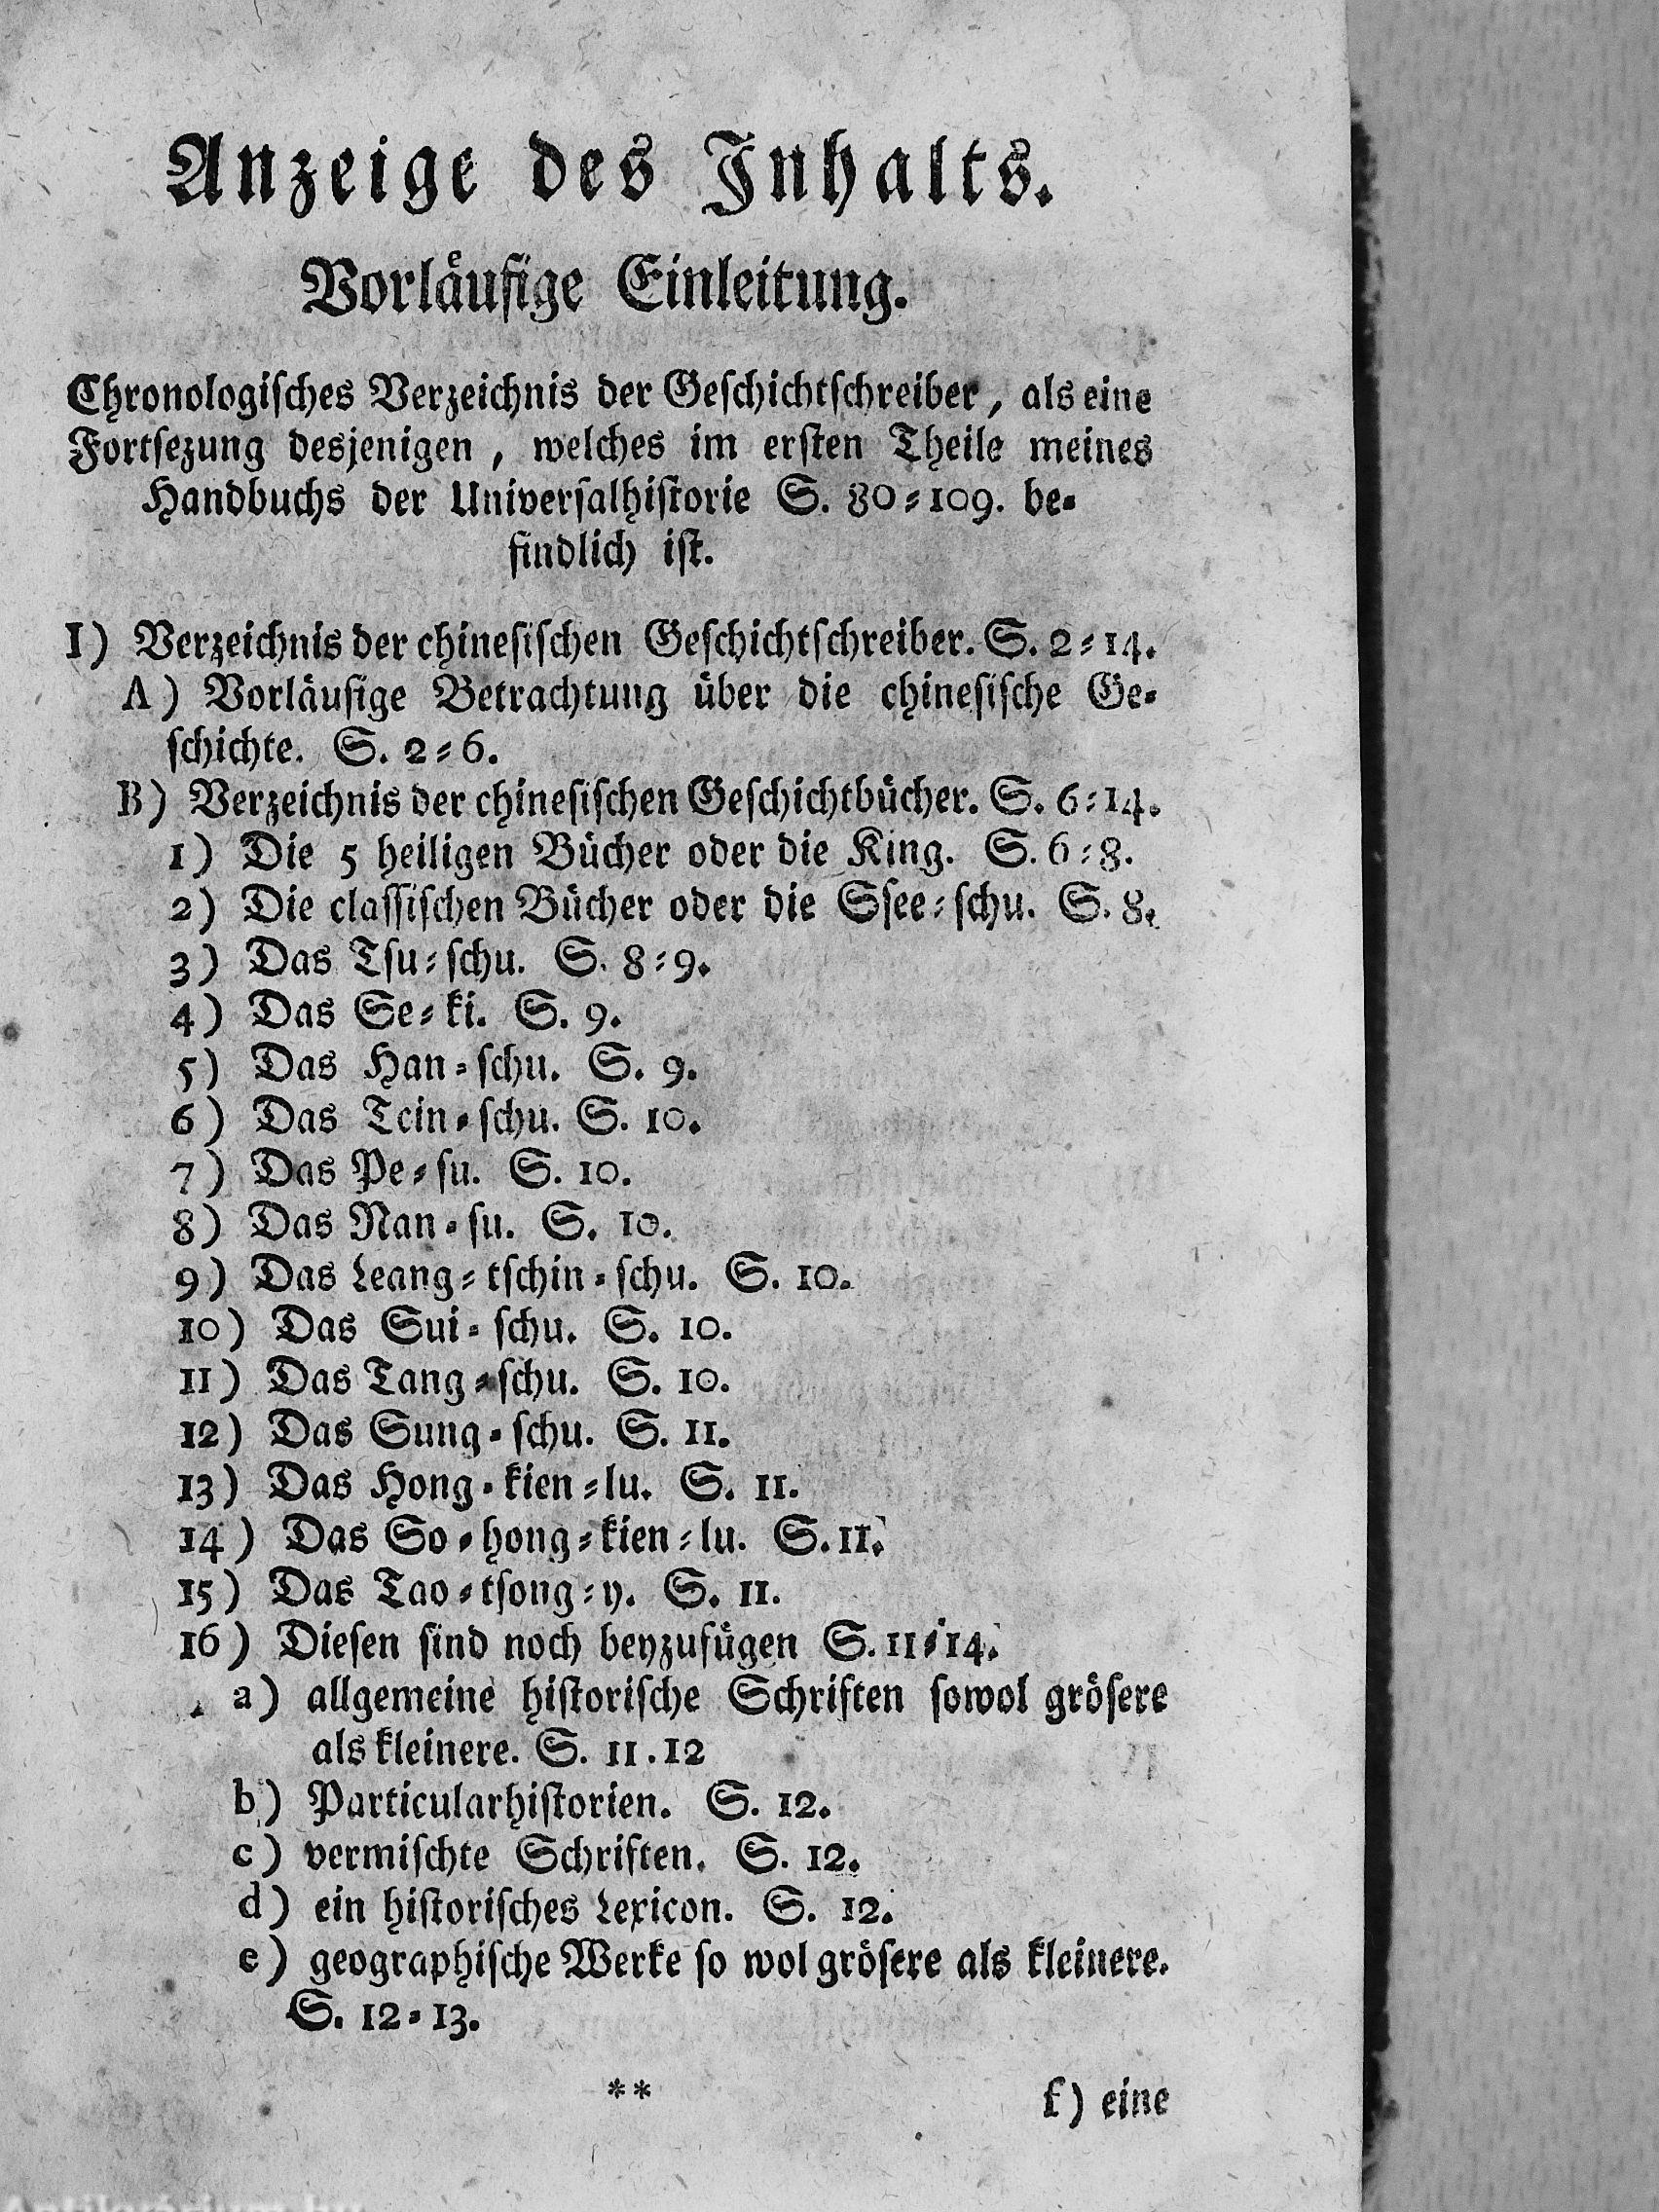 Anzeige des Inhalts.
Vorläufige Einleitung.
Chronologiſches Verzeichnis der Geſchichtſchreiber, als eine
Fortſezung desjenigen, welches im erſten Theile meines
Handbuchs der Univerſalhiſtorie S. 80⸗109. be⸗
findlich iſt.
I) Verzeichnis der chineſiſchen Geſchichtſchreiber. S. 2⸗14.
A) Vorläufige Betrachtung über die chineſiſche Ge⸗
ſchichte. S. 2⸗6.
B) Verzeichnis der chineſiſchen Geſchichtbücher. S. 6⸗14.
1) Die 5 heiligen Bücher oder die King. S. 6⸗8.
2) Die claſſiſchen Bücher oder die Sſee⸗ſchu. S. 8.
3) Das Tſu⸗ſchu. S. 8⸗9.
4) Das Se⸗ki. S. 9.
5) Das Han⸗ſchu. S. 9.
6) Das Tcin⸗ſchu. S. 10.
7) Das Pe⸗ſu. S. 10.
8) Das Nan⸗ſu. S. 10.
9) Das Leang⸗tſchin⸗ſchu. S. 10.
10) Das Sui⸗ſchu. S. 10.
11) Das Tang⸗ſchu. S. 10.
12) Das Sung⸗ſchu. S. 11.
13) Das Hong⸗kien⸗lu. S. 11.
14) Das So⸗hong⸗kien⸗lu. S. 11.
15) Das Tao⸗tſong⸗y. S. 11.
16) Dieſen ſind noch beyzufügen S. 11⸗14.
a) allgemeine hiſtoriſche Schriften ſowol gröſere
als kleinere. S. 11.12
b) Particularhiſtorien. S. 12.
c) vermiſchte Schriften. S. 12.
d) ein hiſtoriſches Lexicon. S. 12.
e) geographiſche Werke ſo wol gröſere als kleinere.
S. 12⸗13.
** f) eine